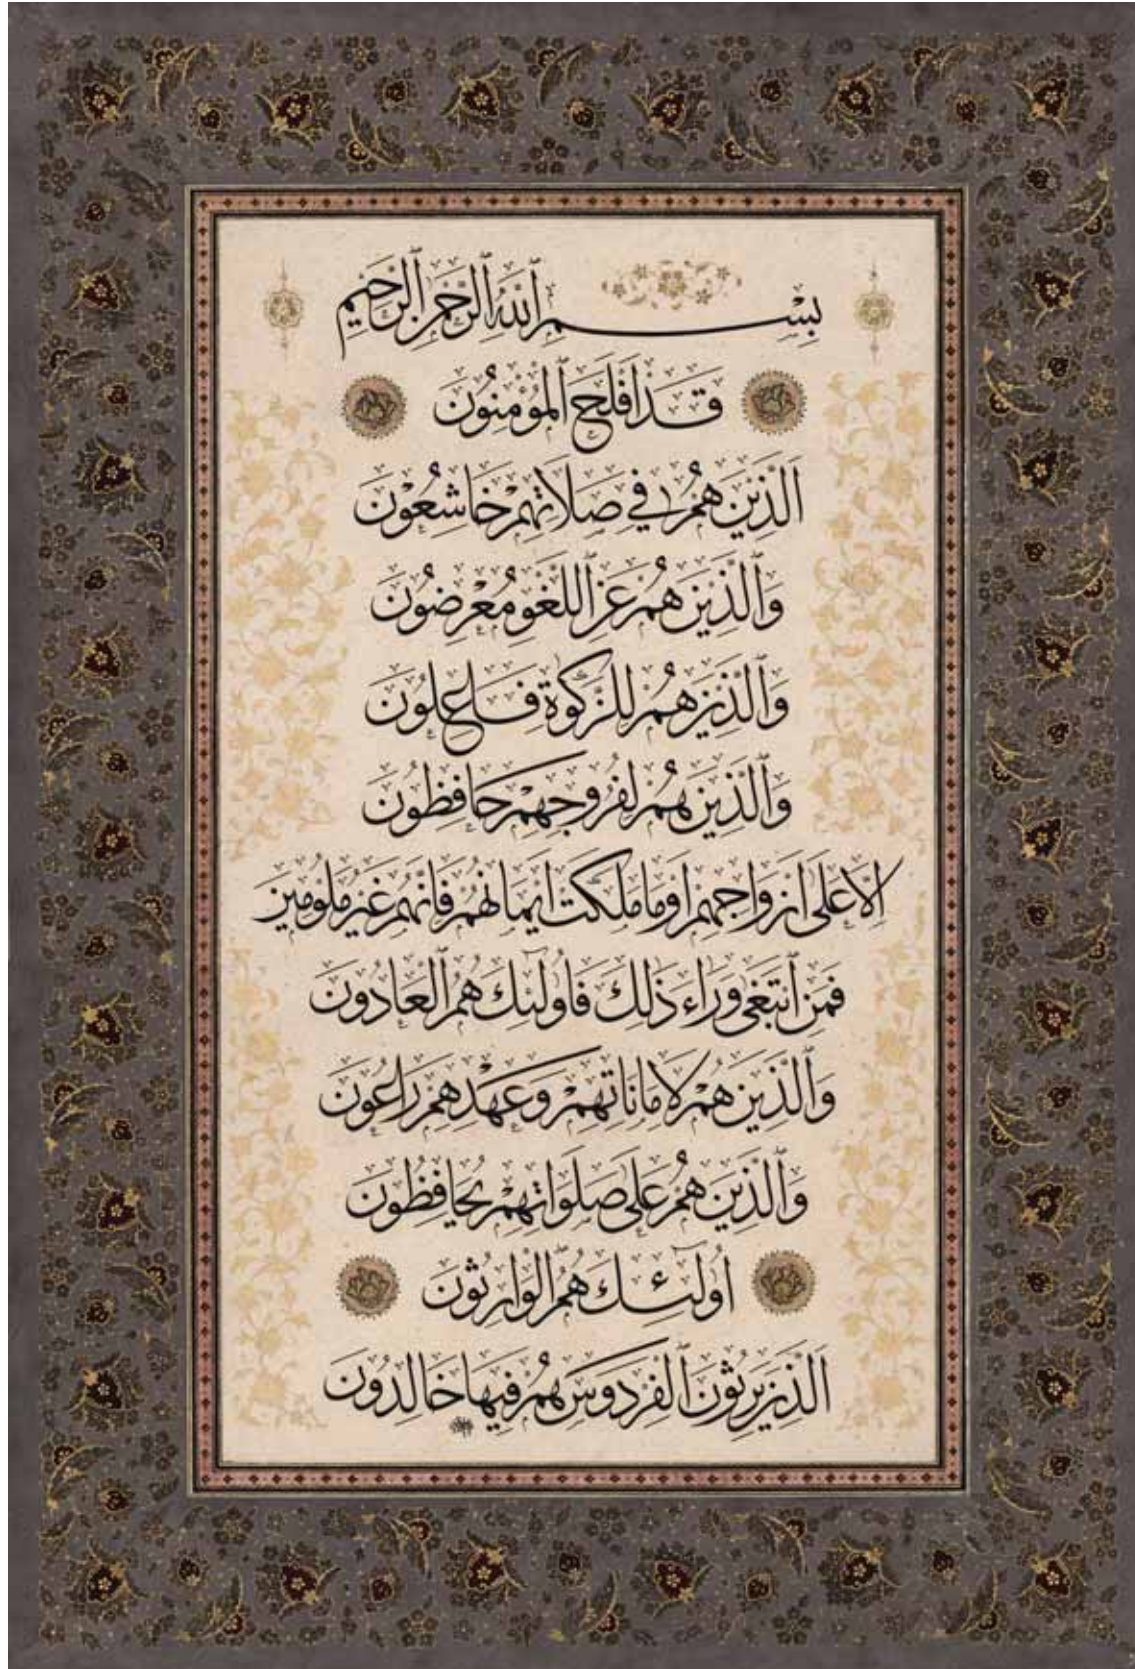 بِسْمِ ٱللّٰهِ ٱلرَّحْمٰنِ ٱلرَّحِيمِ
قَدْ اَفْلَحَ ٱلْمُؤْمِنُونَ
اَلَّذِينَ هُمْ فِي صَلَاتِهِمْ خَاشِعُونَ
وَٱلَّذِينَ هُمْ عَنِ ٱللَّغْوِ مُعْرِضُونَ
وَٱلَّذِينَ هُمْ لِلزَّكٰوةِ فَاعِلُونَ
وَٱلَّذِينَ هُمْ لِفُرُوجِهِمْ حَافِظُونَ
اِلَّا عَلٰى اَزْوَاجِهِمْ اَوْ مَا مَلَكَتْ اَيْمَانُهُمْ فَاِنَّهُمْ غَيْرُ مَلُومِينَ
فَمَنِ ٱبْتَغٰى وَرَاءَ ذٰلِكَ فَاُولٰئِكَ هُمُ ٱلْعَادُونَ
وَٱلَّذِينَ هُمْ لِاَمَانَاتِهِمْ وَعَهْدِهِمْ رَاعُونَ
وَٱلَّذِينَ هُمْ عَلٰى صَلَوَاتِهِمْ يُحَافِظُونَ
اُولٰئِكَ هُمُ ٱلْوَارِثُونَ
اَلَّذِينَ يَرِثُونَ ٱلْفِرْدَوْسَ هُمْ فِيهَا خَالِدُونَ